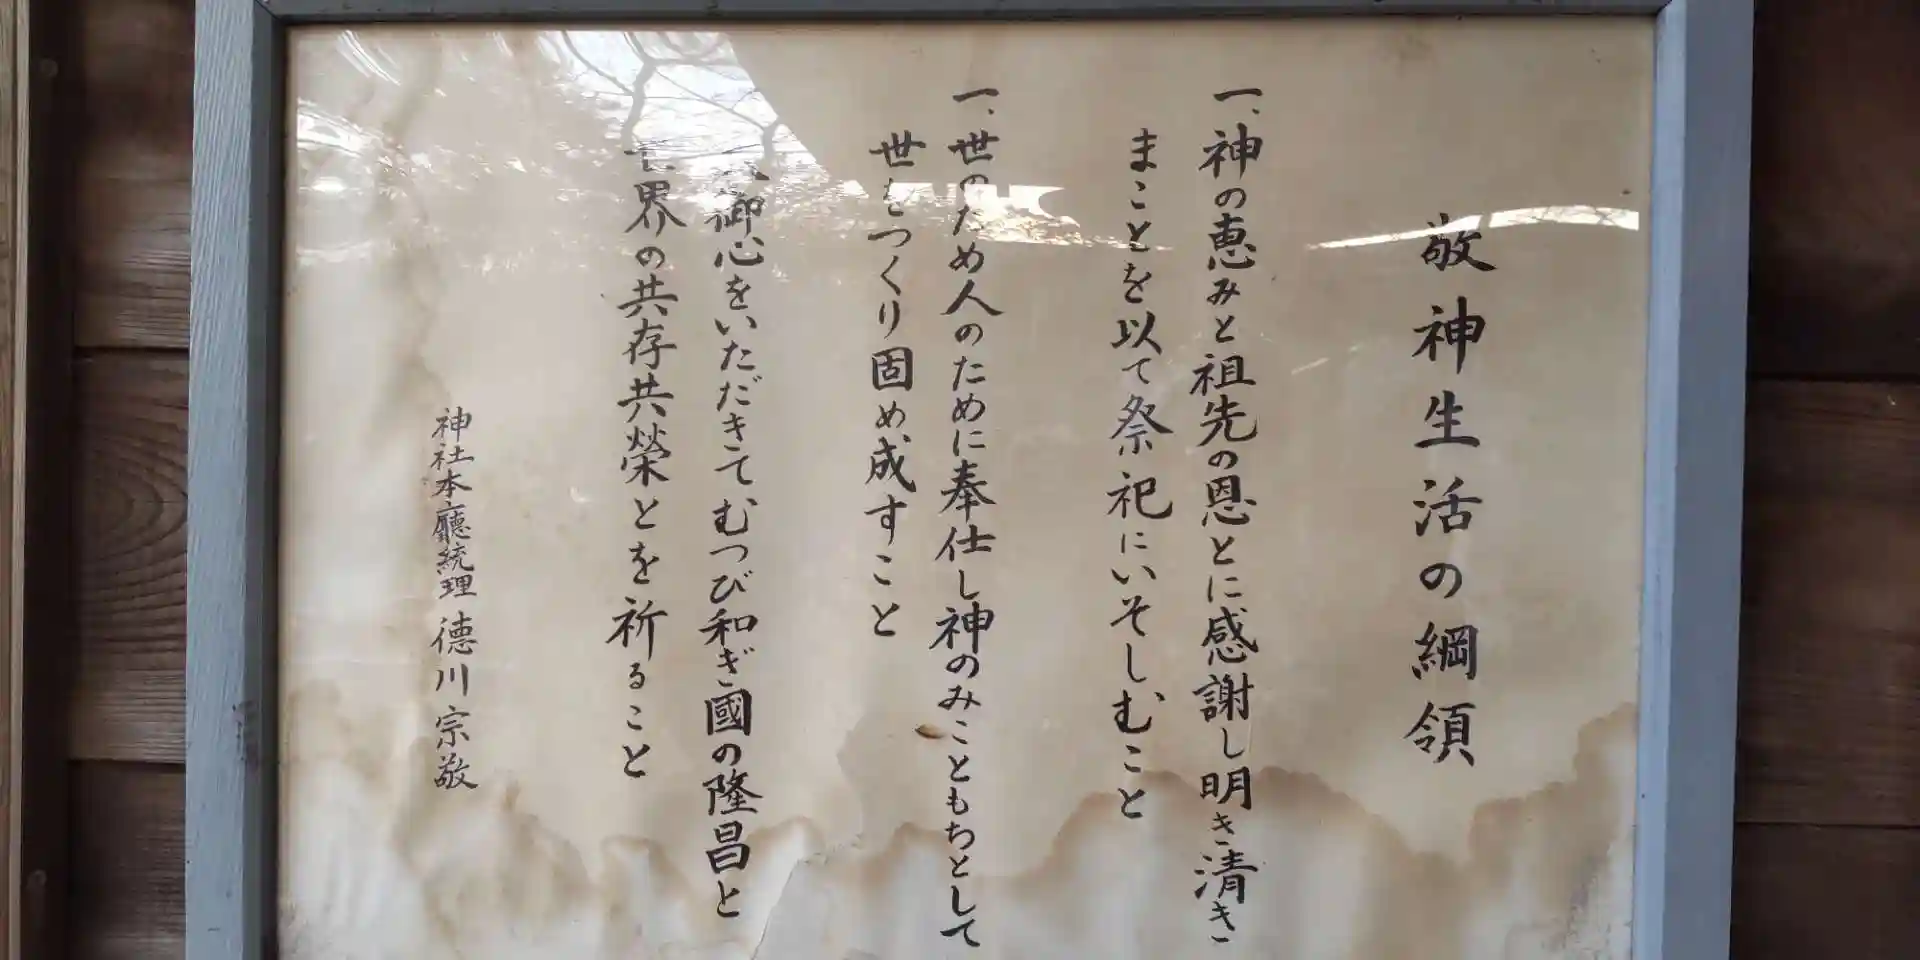 敬神生活の綱領
一、神の恵みと祖先の恩とに感謝し明き清き
まことを以て祭祀にいそしむこと
一、世のため人のために奉仕し神のみこともちとして
世をつくり固め成すこと
御心をいただきてむつび和ぎ國の隆昌と
世界の共存共榮とを祈ること
神社本廳統理 徳川宗敬